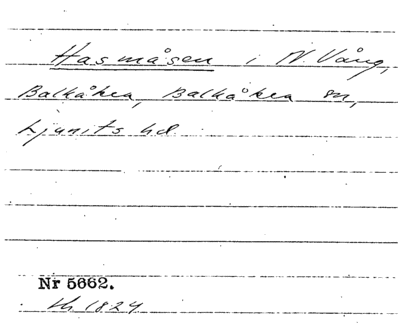 Hasmåsen i N. Vång,
Balkåkra, Balkåkra sn,
Ljunits hd
Nr 5662.
1824